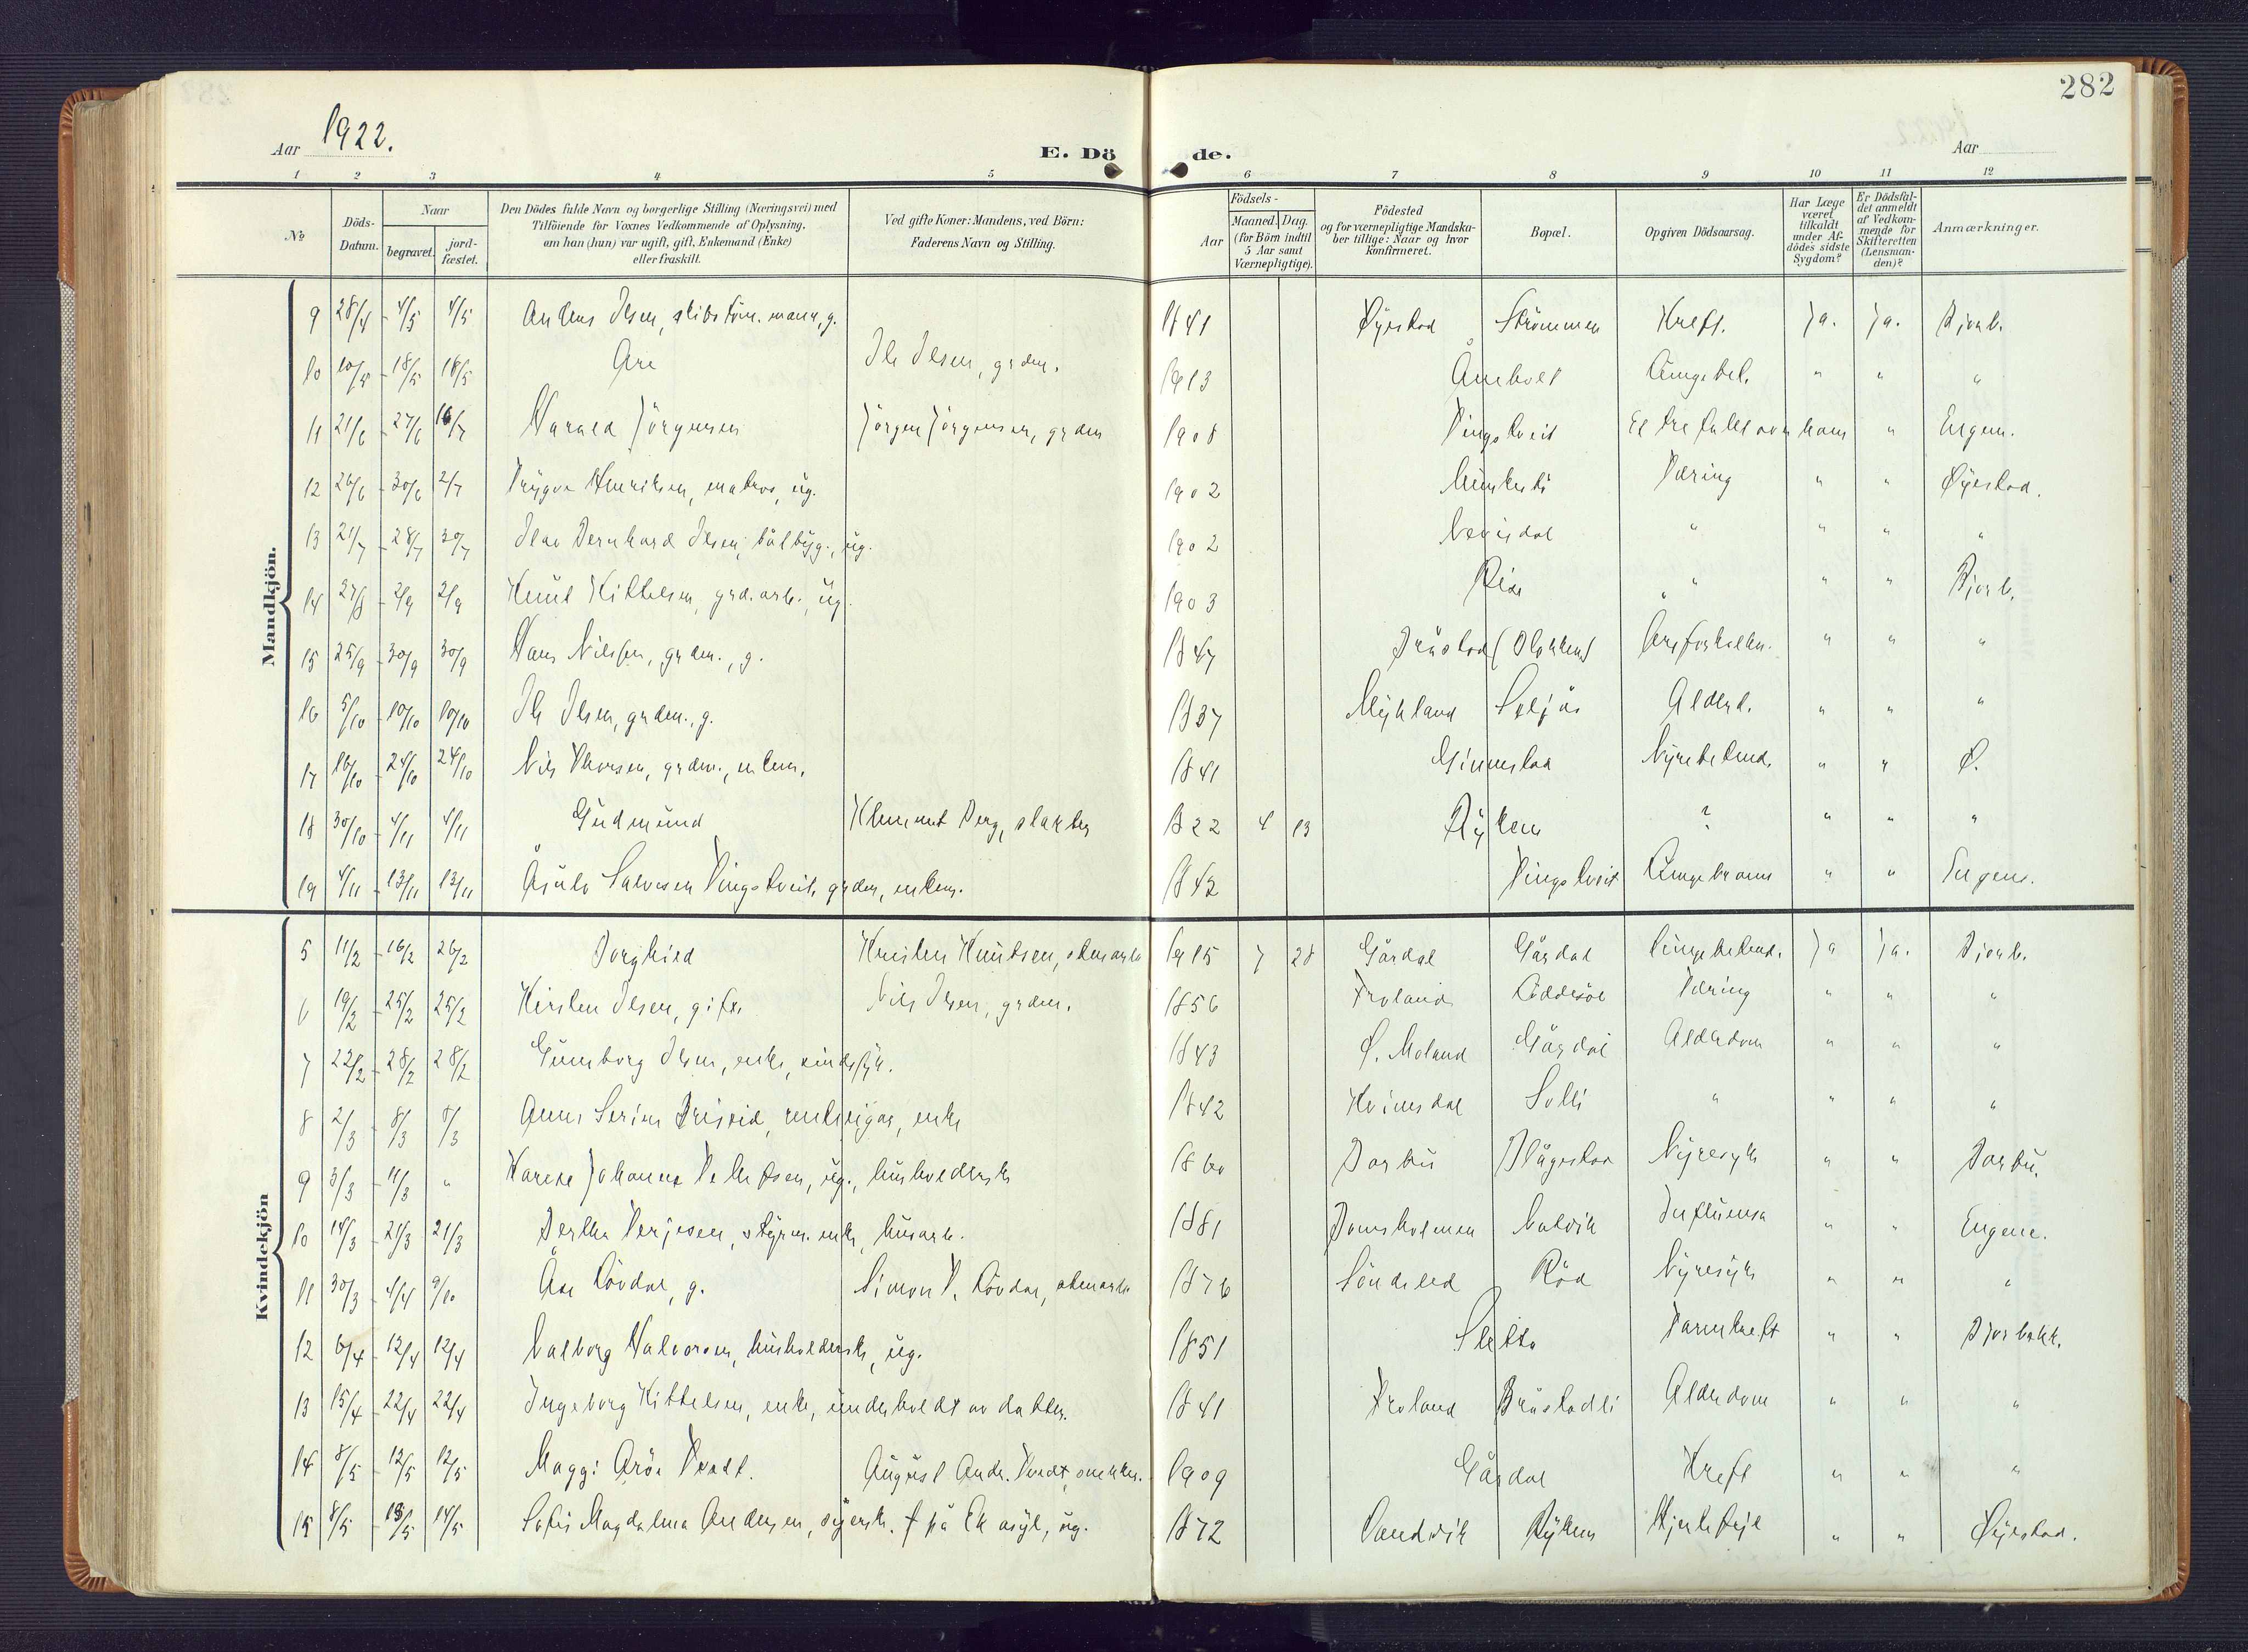 282
Aar 1922.
E. Döde.
Aar
1 2 3 4 5 6 7 8 9 10 11 12
No
Döds-Datum.
Naar
begravet.
jord-fæstet.
Den Dödes fulde Navn og borgerlige Stilling (Næringsvei) med
Tilföiende for Voxnes Vedkommende af Oplysning,
om han (hun) var ugift, gift, Enkemand (Enke)
eller fraskilt.
Ved gifte Koner: Mandens, ved Börn:
Faderens Navn og Stilling.
Födsels-
Aar
Maaned. Dag.
(for Börn indtil
5 Aar samt
Værnepligtige).
Födested
og for værnepligtige Mandska-
ber tillige: Naar og hvor
konfirmeret.
Bopæl.
Opgiven Dödsaarsag.
Har Læge
været
tilkaldt
under Af-
dödes sidste
Sygdom?
Er Dödsfal-
det anmeldt
af Vedkom-
mende for
Skifteretten
(Lensman-
den)?
Anmærkninger.
Mandkjön.
9 28/4 - 4/5 4/5 Anders Olsen, g. 1841 Øyestad Strömmen Kreft. Ja. Ja. Bjorb.
10 10/5 - 18/5 18/5 Are Ole Olsen, grdm. 1913 Åmholt Lungebet. " " "
11 21/6 - 27/6 16/7 Harald Jörgensen Jörgen Jörgensen, grdm 1908 Tingstveit Et træ faldt over ham " Engene.
12 26/6 - 30/6 2/7 Trygve Henriksen, matros, ug. 1902 Tæring " " Øyestad.
13 21/7 - 28/7 30/7 Olav Bernhard Olsen, båtbyg., ug. 1902 Nævisdal " " " "
14 27/8 - 2/9 2/9 Knut Kittelsen, grd.arb., ug. 1903 Rise " " " Bjorb.
15 25/9 - 30/9 30/9 Hans Nilssen, grdm., g. 1847 Bråstad (Bakken) Areforkalkn. " " "
16 5/10 - 10/10 10/10 Ole Olsen, grdm., g. 1837 Mykland Seljås Alderd. " " "
17 16/10 - 24/10 24/10 Nils Thorsen, grdm., enkem. 1841 Ginnestad Nyrebetend. " " Ø.
18 30/10 - 4/11 4/11 Gudmund Klemmet Berg, slakter 1922 4 13 Ryken ? " " "
19 4/11 - 13/11 13/11 Åsulv Salvesen Tingstveit, grdm, enkem. 1842 Tingstveit " " Engene.
Kvindekjön
5 11/2 - 16/2 26/2 Borghild Kristen Knutsen, stenarb. 1915 7 28 Gårdal Gårdal Lungebetend. Ja Ja. Bjorb.
6 19/2 - 25/2 25/2 Kirsten Olsen, gift. Nils Olsen, grdm. 1856 Froland Oddesöl Tæring " " "
7 22/2 - 28/2 28/2 Gunborg Olsen, enke, sindssyk. 1843 Ø. Moland Gårdal Alderdom " " "
8 2/3 - 8/3 8/3 Anne Serine enke 1842 Kvinesdal Solli " " " "
9 3/3 - 11/3 " Karen Johanne ug., husholderske 1860 Barbu Blågestad Nyresyk " " Barbu.
10 14/3 - 21/3 21/3 Berthe Terjesen, styrm. enke, husarb. 1881 Natvik Influensa " " Engene.
11 30/3 - 4/4 9/10 Åse Lövdal, g. Simon T. Lövdal, stenarb. 1876 Söndeled Röd Nyresyk " " "
12 6/4 - 12/4 12/4 Valborg Halvorsen, husholderske, ug. 1851 Sletta Tarmkreft " " Bjorbekk.
13 15/4 - 22/4 22/4 Ingeborg Kittelsen, enke, underholdt av datter. 1841 Froland Bråstadli Alderdom " " "
14 8/5 - 12/5 12/5 Maggi Arö Tvedt. August Andr. Tvedt, snekker. 1909 Gårdal Kreft " " "
15 8/5 - 13/5 14/5 Sofie Magdalena Andersen, syersk. † på Ek asyl, ug. 1872 Ryken Hjertefeil " " Øyestad.